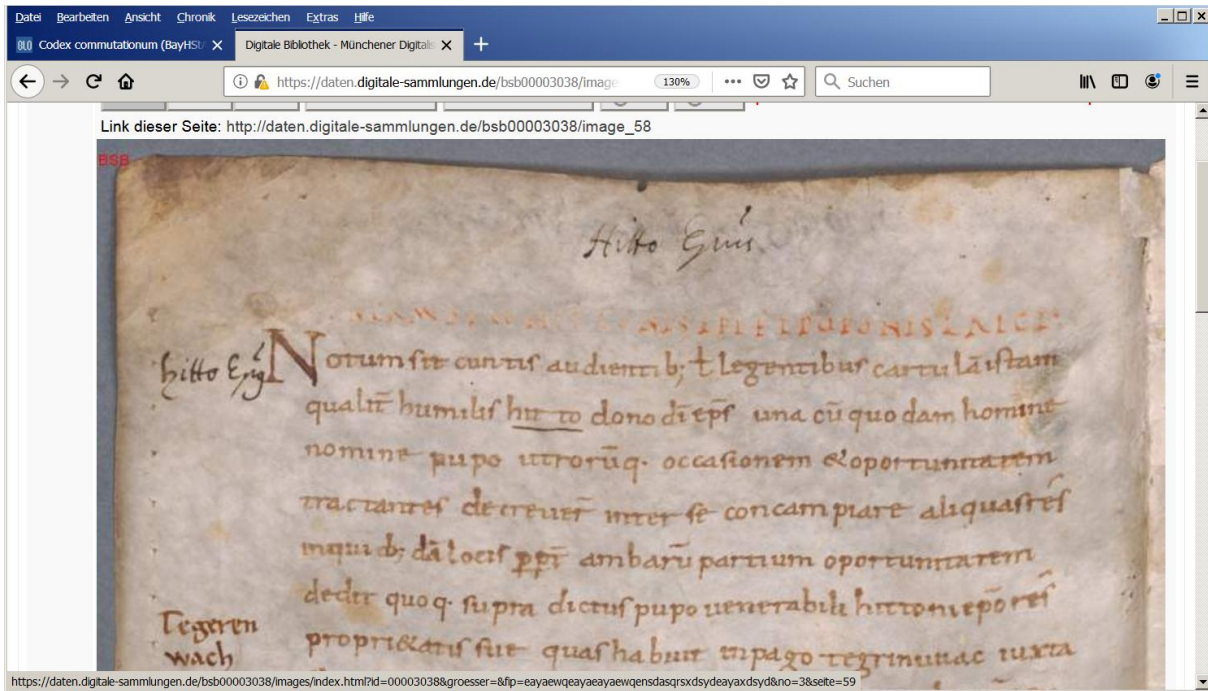 Datei Bearbeiten Ansicht Chronik Lesezeichen Extras Hilfe
Codex commutationum (BayHStA
Digitale Bibliothek - Münchener Digitalis
https://daten.digitale-sammlungen.de/bsb00003038/image
130%
Suchen
Link dieser Seite: http://daten.digitale-sammlungen.de/bsb00003038/image_58
BSB
Hitto
hitto
Notum sit cunctis audientib; ł legentibus cartulā istam
qualit̄ humilis hitto dono dī ep̄s una cū quodam homine
nomine pupo utrorūq· occasionem & oportunitatem
tractantes decreuer̄ inter se concampiare aliquas rēs
in quib; dā locis ꝓpt̄ ambarū partium oportunitatem
dedit quoq· supra dictus pupo uenerabili hittoni epō rēs
propri&atis sue quas habuit in pago tegrinuuac iuxta
Tegeren
wach
https://daten.digitale-sammlungen.de/bsb00003038/images/index.html?id=00003038&groesser=&fip=eayaewqeayaeayaewqensdasqrsxdsydeayaxdsyd&no=3&seite=59